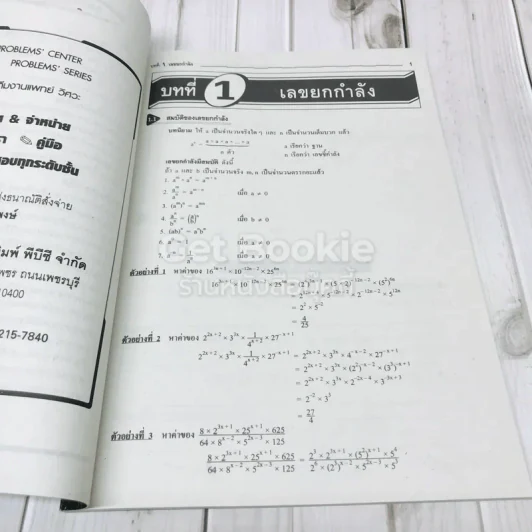 PROBLEMS' CENTER
PROBLEMS' SERIES
& จำหน่าย
คู่มือ
สอบทุกระดับชั้น
สั่งธนาณัติสั่งจ่าย
พงษ์
มพ์ พีบีซี จำกัด
เพชร ถนนเพชรบุรี
10400
215-7840
บทที่ 1 เลขยกกำลัง 1
บทที่ 1 เลขยกกำลัง
1.1 สมบัติของเลขยกกำลัง
บทนิยาม ให้ a เป็นจำนวนจริงใด ๆ และ n เป็นจำนวนเต็มบวก แล้ว
a เรียกว่า ฐาน
n ตัว n เรียกว่า เลขชี้กำลัง
เลขยกกำลังมีสมบัติ ดังนี้
ถ้า a และ b เป็นจำนวนจริง m, n เป็นจำนวนตรรกยะแล้ว
1. aᵐ × aⁿ = aᵐ⁺ⁿ
2. aᵐ/aⁿ = aᵐ⁻ⁿ เมื่อ a ≠ 0
3. (aᵐ)ⁿ = aᵐⁿ
4. aⁿ/bⁿ = (a/b)ⁿ เมื่อ b ≠ 0
5. (ab)ⁿ = aⁿbⁿ
Get Bookie
ร้านหนังสือบุ๊คกี้
ตัวอย่างที่ 1 หาค่าของ
= 4/25
ตัวอย่างที่ 2 หาค่าของ 2²ˣ⁺² × 3³ˣ × 1/4ˣ⁺² × 27⁻ˣ⁺¹
2²ˣ⁺² × 3³ˣ × 1/4ˣ⁺² × 27⁻ˣ⁺¹ = 2²ˣ⁺² × 3³ˣ × 4⁻ˣ⁻² × 27⁻ˣ⁺¹
= 2²ˣ⁺² × 3³ˣ × (2²)⁻ˣ⁻² × (3³)⁻ˣ⁺¹
= 2²ˣ⁺² × 3³ˣ × 2⁻²ˣ⁻⁴ × 3⁻³ˣ⁺³
= 2⁻² × 3³
= 27/4
ตัวอย่างที่ 3 หาค่าของ (8 × 2³ˣ⁺¹ × 25ˣ⁺¹ × 625)/(64 × 8ˣ⁻² × 5²ˣ⁻³ × 125)
(8 × 2³ˣ⁺¹ × 25ˣ⁺¹ × 625)/(64 × 8ˣ⁻² × 5²ˣ⁻³ × 125) = (2³ × 2³ˣ⁺¹ × (5²)ˣ⁺¹ × 5⁴)/(2⁶ × (2³)ˣ⁻² × 5²ˣ⁻³ × 5³)